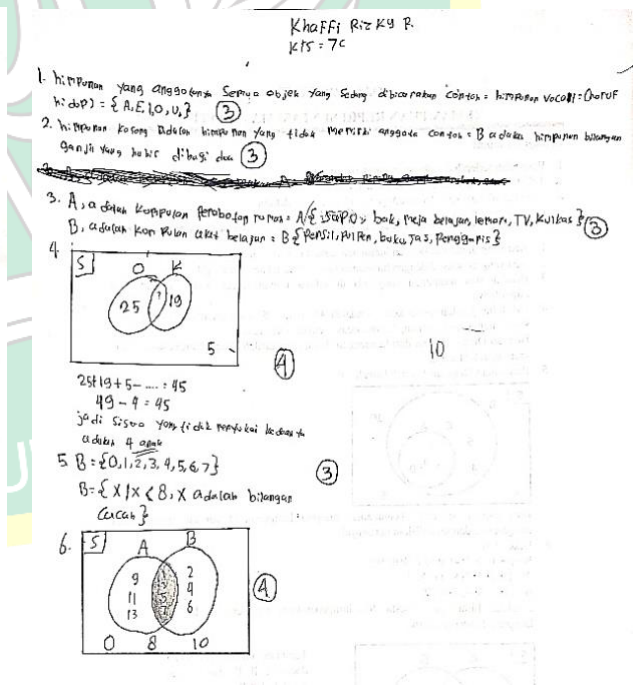 Khaffi Rizky P.
kls = 7c
1. himpunan yang anggotanya semua objek yang sedang dibicarakan contoh = himpunan vocal = (horuf
hidop) = {A, E, I, O, U,} 3
2. himpunan kosong adalah himpunan yang tidak memiliki anggota contoh = B adalah himpunan bilangan
ganjil yang habis dibagi dua 3
3. A, adalah kumpulan perobotan rumah = A { sapu, bak, meja belajar, lemari, TV, kulkas } 3
B, adalah kumpulan alat belajar = B {Pensil, pulpen, buku, Tas, Penggaris}
4.
S O K
25 19
5
4
10
25+19+5- .... = 45
49 - 4 = 45
jadi siswa yang tidak menyukai keduanya
adalah 4 anak
5. B = {0,1,2,3,4,5,6,7} 3
B = {X | X < 8, X adalah bilangan
cacah}
6. S A B
9 2
11 5 4
13 7 6
0 8 10
4